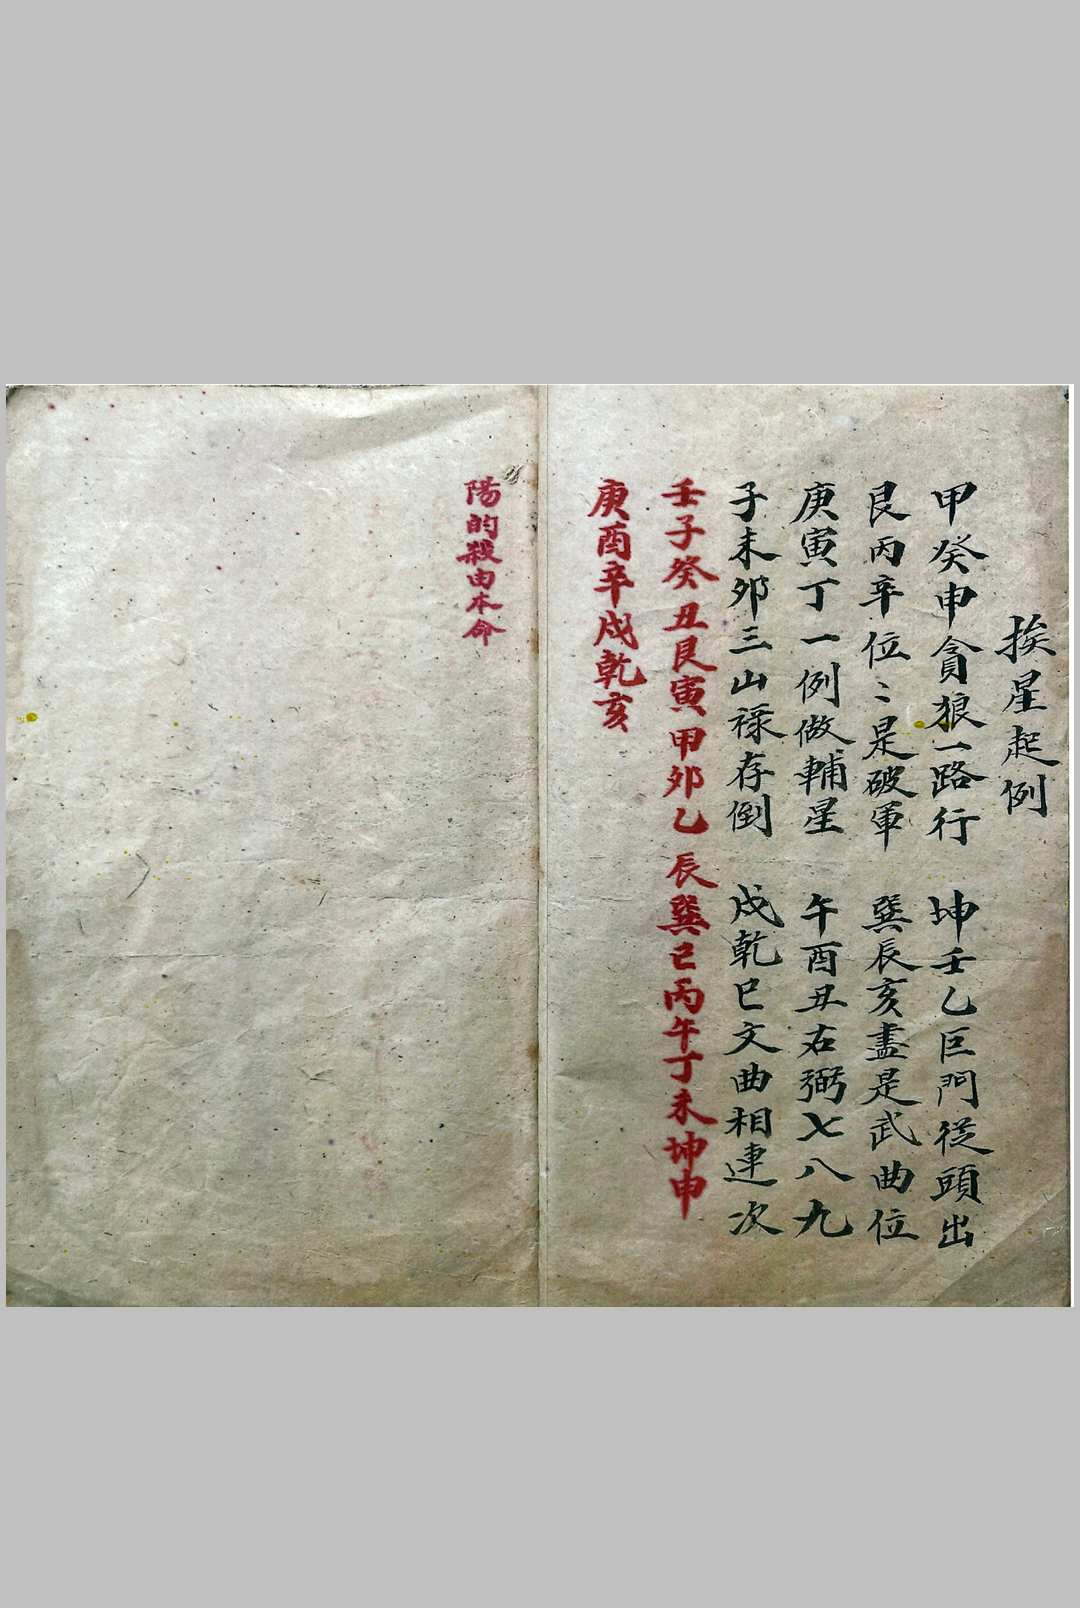 挨星起例
甲癸申貪狼一路行　坤壬乙巨門從頭出
艮丙辛位〻是破軍　巽辰亥盡是武曲位
庚寅丁一例做輔星　午酉丑右弼七八九
子未卯三山祿存倒　戌乾巳文曲相連次
壬子癸丑艮寅甲卯乙辰巽巳丙午丁未坤申
庚酉辛戌乾亥
陽的殺由本命